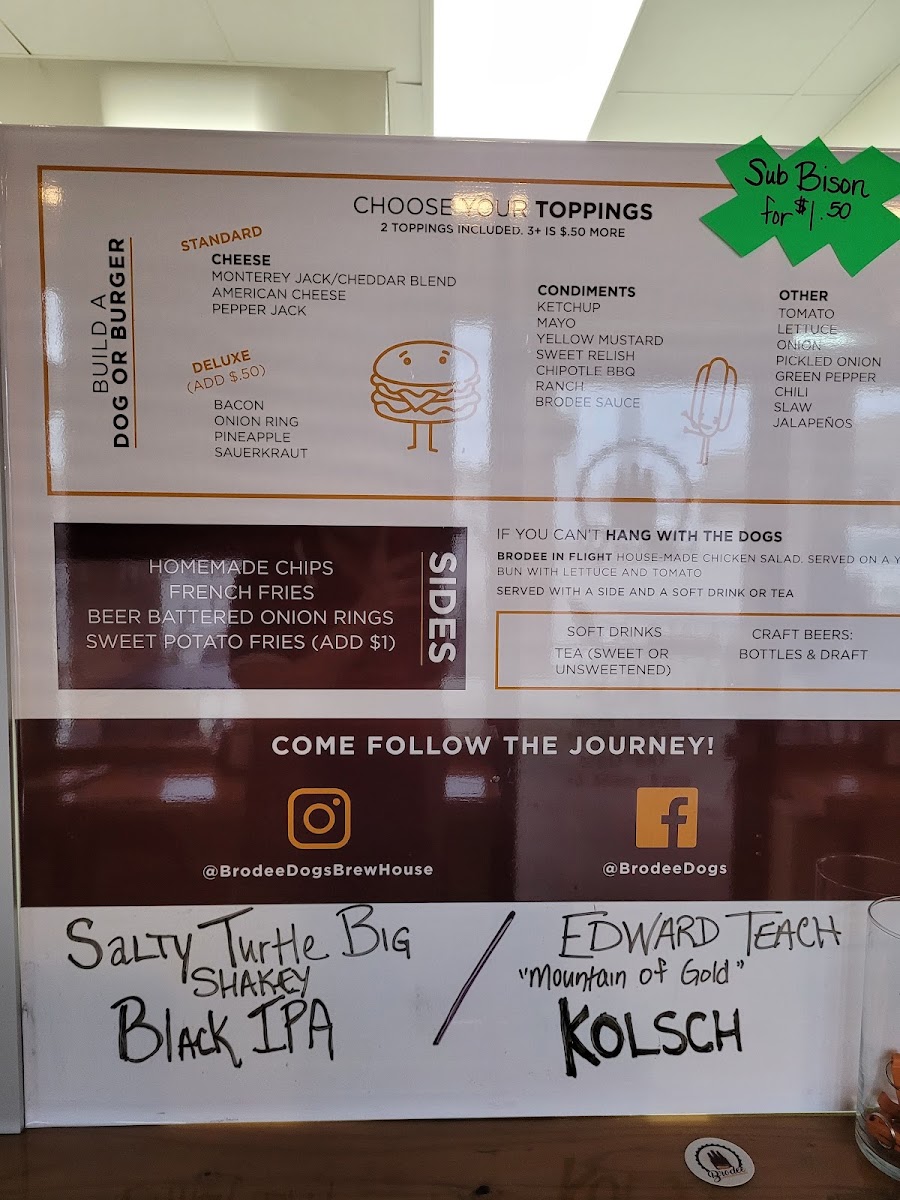 Sub Bison
for $1.50
CHOOSE YOUR TOPPINGS
2 TOPPINGS INCLUDED. 3+ IS $.50 MORE
BUILD A
DOG OR BURGER
STANDARD
CHEESE
MONTEREY JACK/CHEDDAR BLEND
AMERICAN CHEESE
PEPPER JACK
DELUXE
(ADD $.50)
BACON
ONION RING
PINEAPPLE
SAUERKRAUT
CONDIMENTS
KETCHUP
MAYO
YELLOW MUSTARD
SWEET RELISH
CHIPOTLE BBQ
RANCH
BRODEE SAUCE
OTHER
TOMATO
LETTUCE
ONION
PICKLED ONION
GREEN PEPPER
CHILI
SLAW
JALAPEÑOS
HOMEMADE CHIPS
FRENCH FRIES
BEER BATTERED ONION RINGS
SWEET POTATO FRIES (ADD $1)
SIDES
IF YOU CAN'T HANG WITH THE DOGS
BRODEE IN FLIGHT HOUSE-MADE CHICKEN SALAD. SERVED ON A
BUN WITH LETTUCE AND TOMATO
SERVED WITH A SIDE AND A SOFT DRINK OR TEA
SOFT DRINKS
TEA (SWEET OR
UNSWEETENED)
CRAFT BEERS:
BOTTLES & DRAFT
COME FOLLOW THE JOURNEY!
@BrodeeDogsBrewHouse
@BrodeeDogs
SALTY TURTLE BIG
SHAKEY
BLACK IPA
/
EDWARD TEACH
"Mountain of Gold"
KOLSCH
Brodee